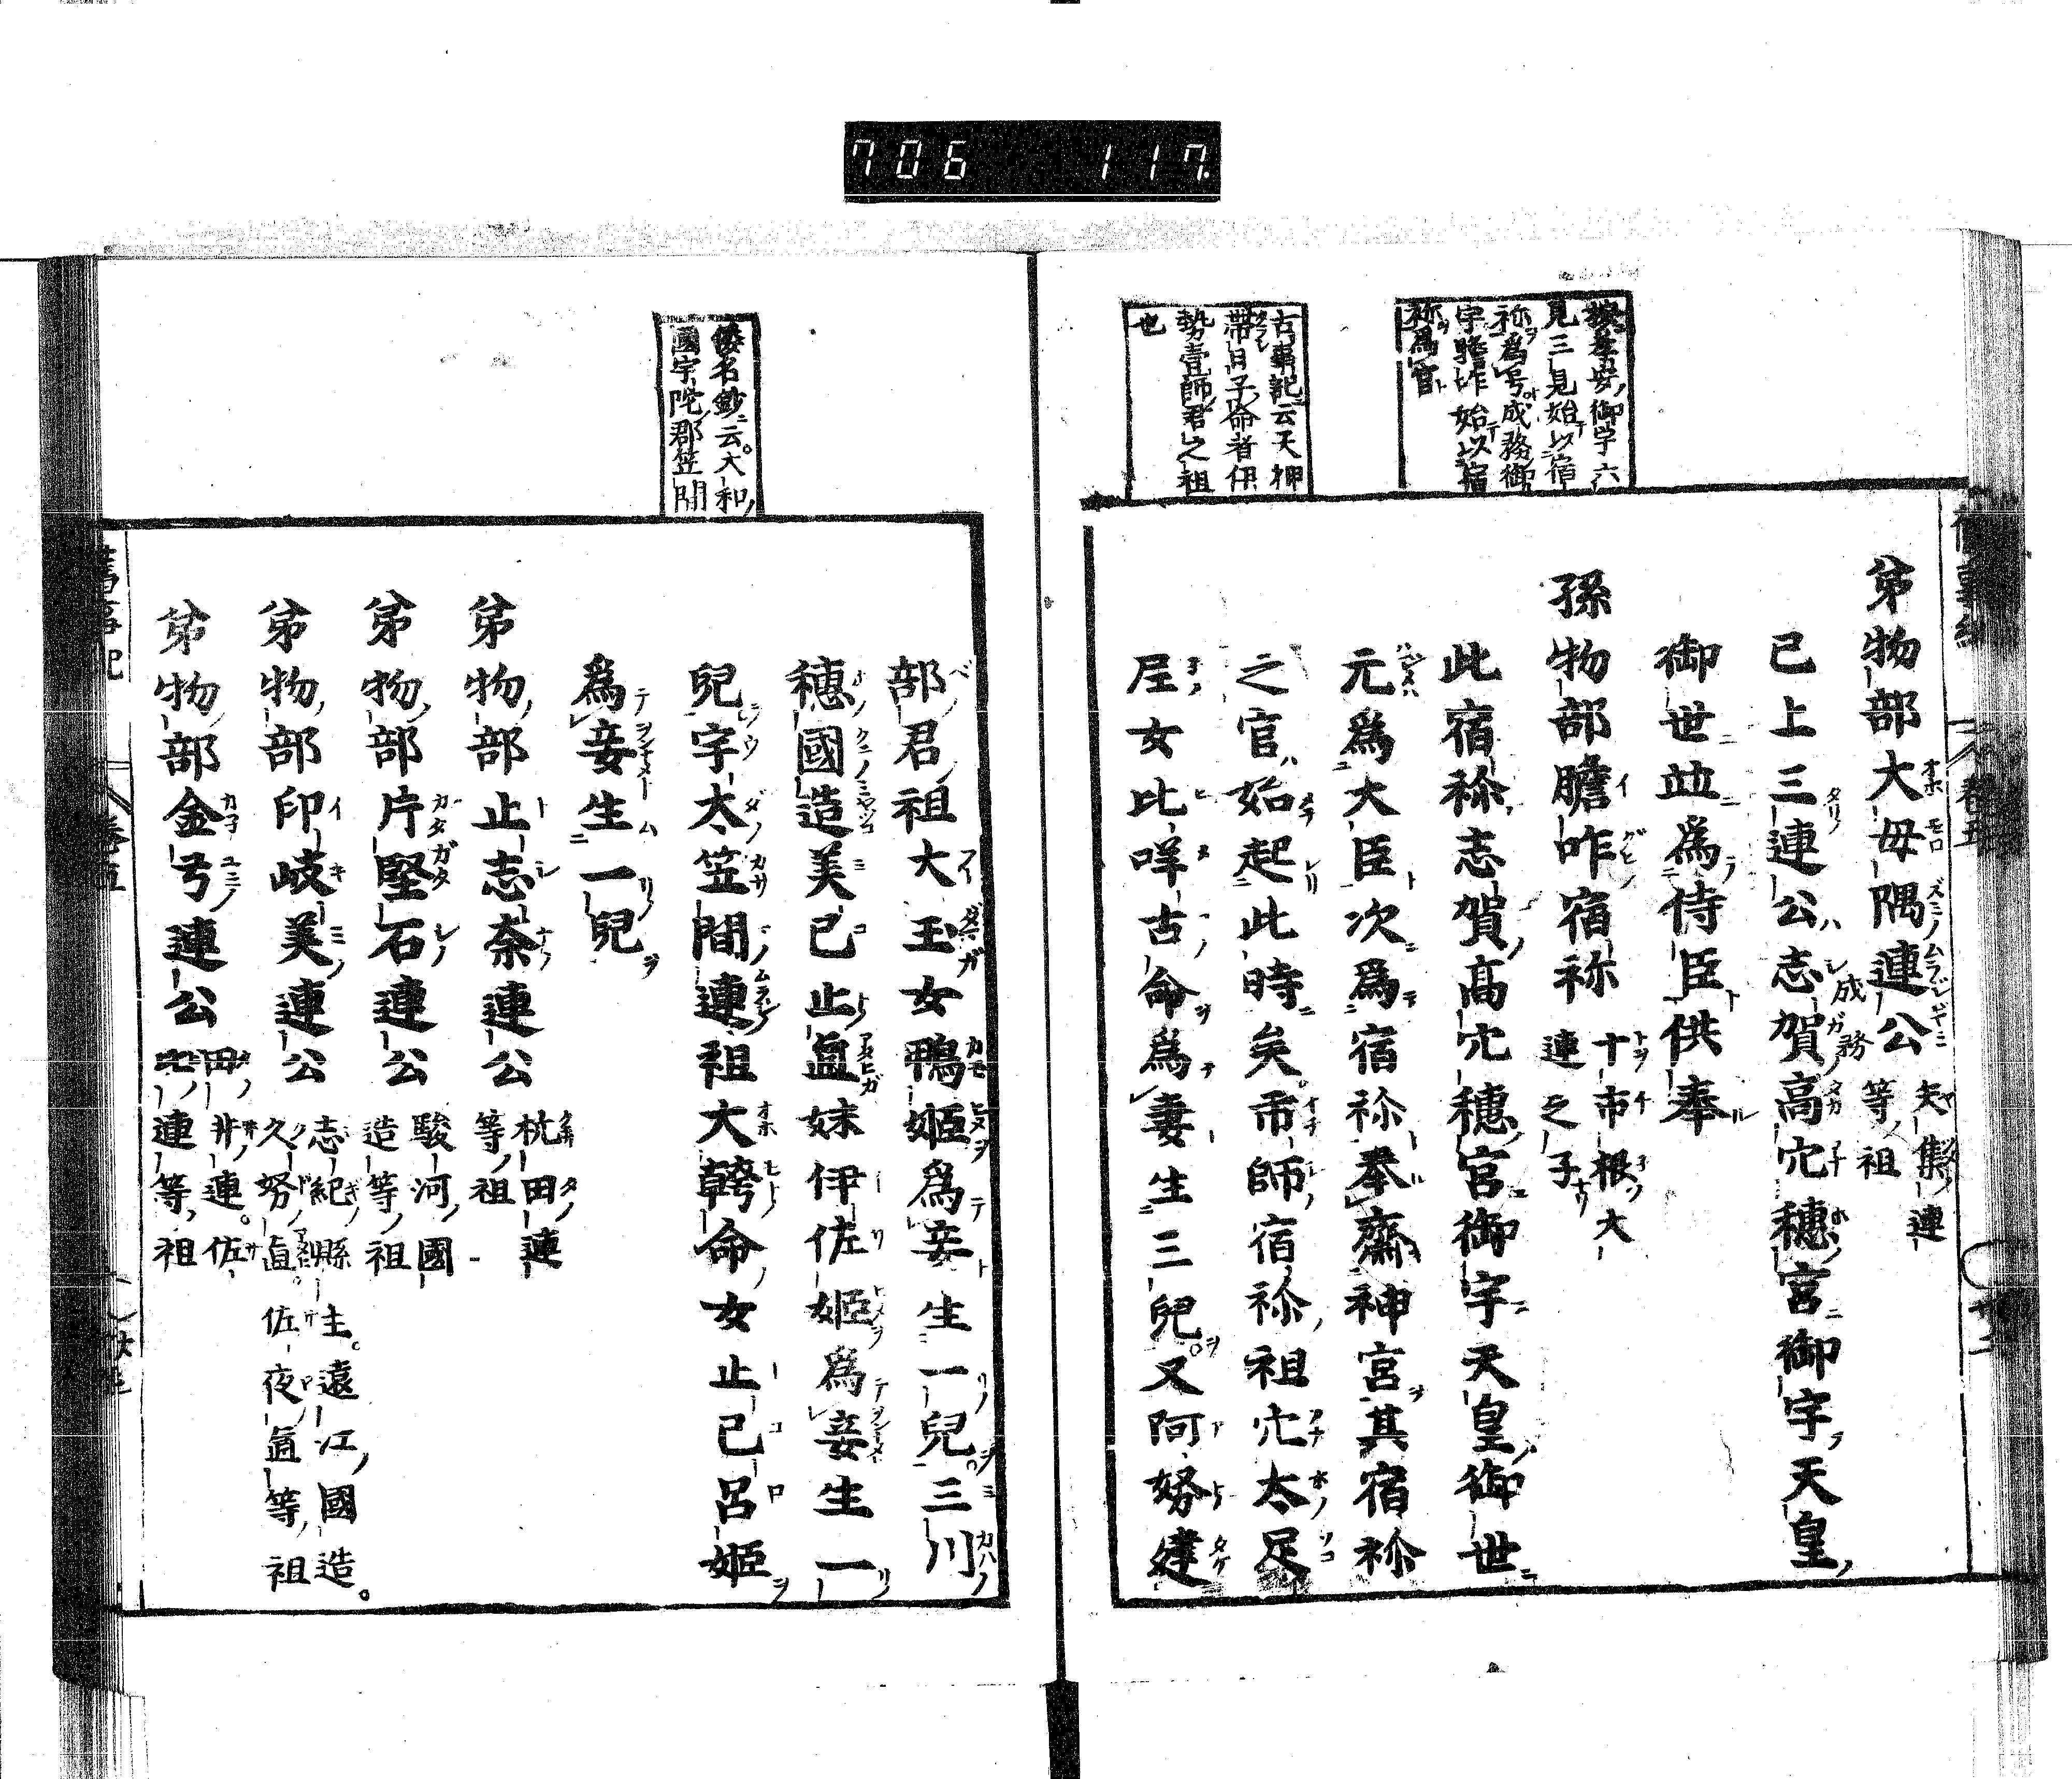 706 117
按孝安御宇六
見三見始以宿
祢為号成務御
宇膽咋始以宿
祢為官
古事記云天押
帯日子命者伊
勢壹師君之祖
也
弟物部大毋隅連公 矢集連等祖
已上三連公志賀高穴穗宮御宇天皇
成務
御世並為侍臣供奉
孫物部膽咋宿祢 十市根大連之子
此宿祢志賀髙穴穗宮御宇天皇御世
元為大臣次為宿祢奉齋神宮其宿祢
之官始起此時矣市師宿祢祖穴太足
尼女比咩古命為妻生三兒又阿努建
倭名鈔云大和
國宇陀郡笠間
部君祖大玉女鴨姫為妾生一兒三川
穗國造美己止直妹伊佐姫為妾生一
兒宇太笠間連祖大幹命女止己呂姫
為妾生一兒
弟物部止志奈連公 杭田連等祖
弟物部片堅石連公 駿河國造等祖
弟物部印岐美連公 志紀縣主遠江國造久努直佐夜直等祖
弟物部金弓連公 田井連佐比連等祖
舊事記 卷五